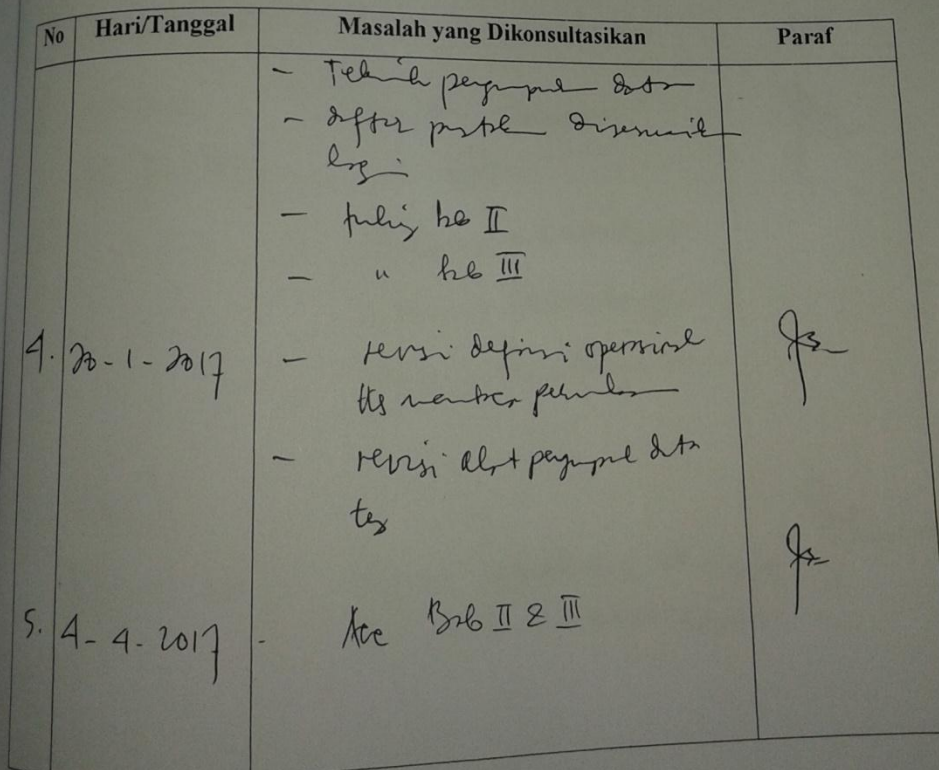 No Hari/Tanggal Masalah yang Dikonsultasikan Paraf
- Teknik pengumpul data
- daftar pustak disesuaik
lagi
- bab II
- " bab III
4. 20-1-2017 - revisi definisi operasional
ttg member
- revisi alat pengumpul data
5. 4-4-2017 - Acc Bab II & III